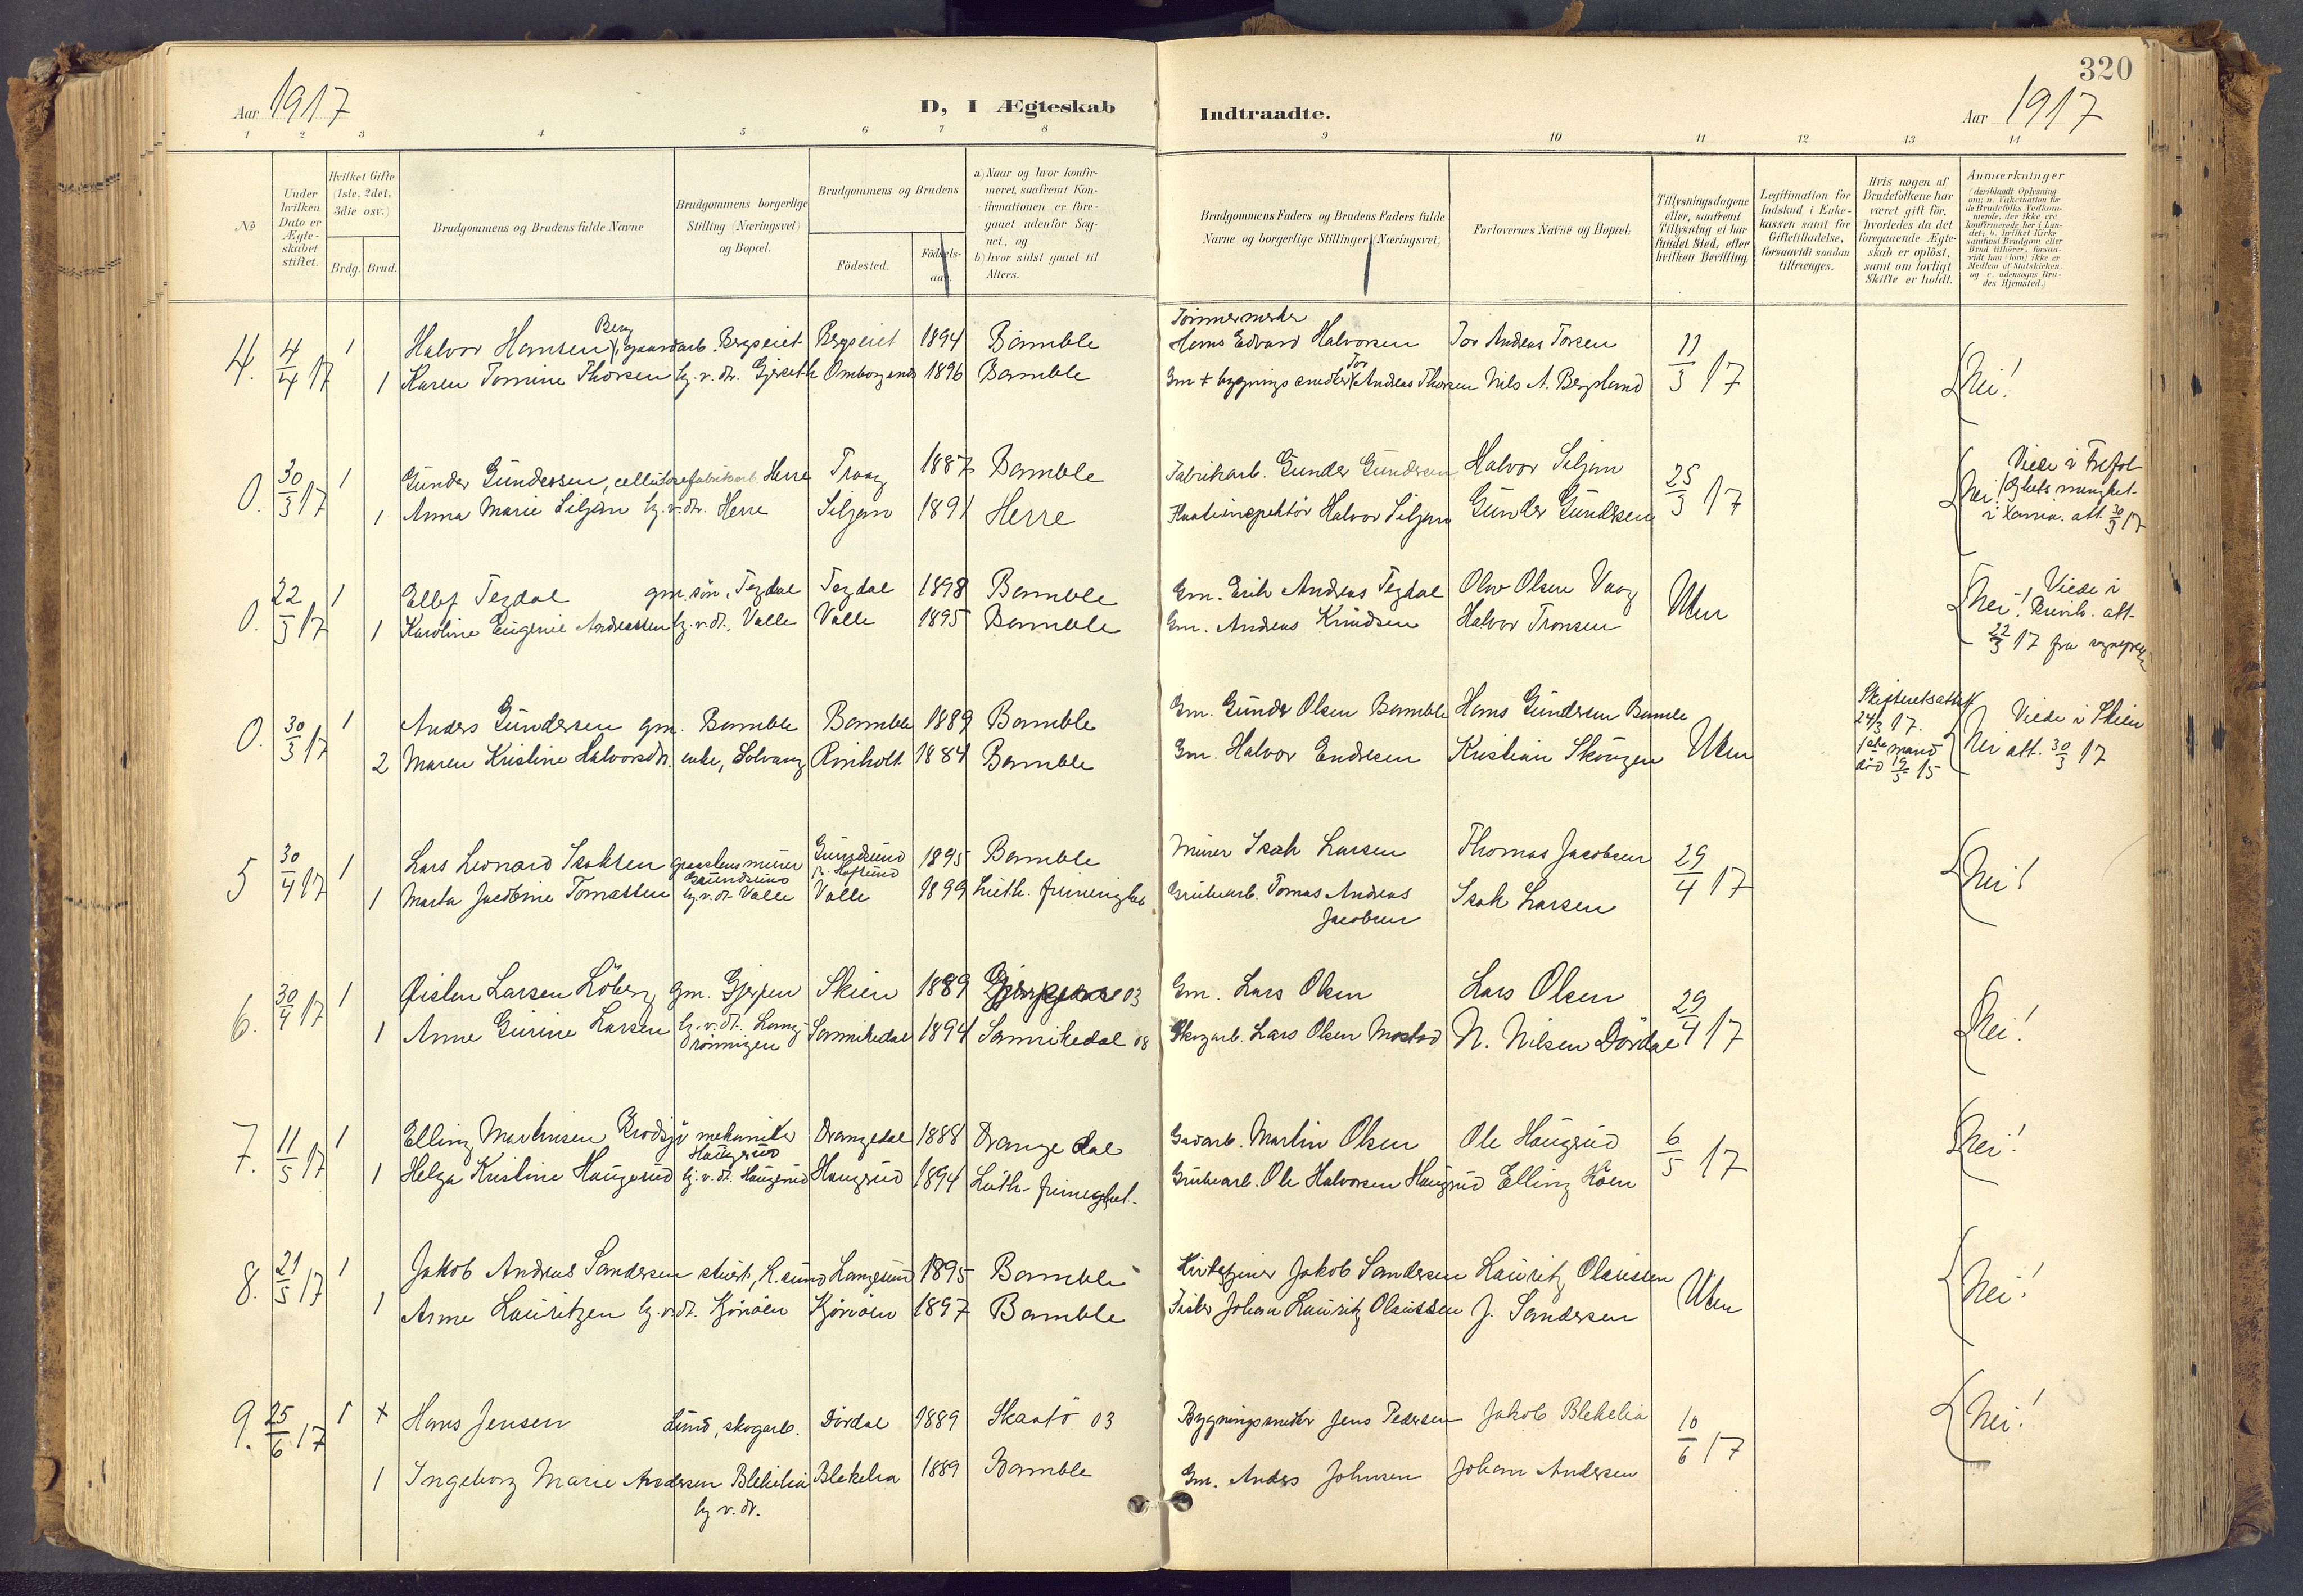 320
Aar 1917
D, I Ægteskab Indtraadte.
Aar 1917
1 2 3 4 5 6 7 8 9 10 11 12 13 14
№
Under hvilken Dato er Ægteskabet stiftet.
Hvilket Gifte (1ste, 2det, 3die osv.)
Brdg. Brud.
Brudgommens og Brudens fulde Navne
Brudgommens borgerlige Stilling (Næringsvei) og Bopæl.
Brudgommens og Brudens
Fødested.
Fødselsaar.
a) Naar og hvor konfirmeret, saafremt Konfirmationen er foregaaet udenfor Sognet, og
b) hvor sidst gaaet til Alters.
Brudgommens Faders og Brudens Faders fulde Navne og borgerlige Stillinger (Næringsvei)
Forlovernes Navne og Bopæl.
Tillysningsdagene eller, saafremt Tillysning ei har fundet Sted, efter hvilken Bevilling.
Legitimation for Indskud i Enkekassen samt for Giftetilladelse, forsaavidt saadan tiltrænges.
Hvis nogen af Brudefolkene har været gift før, hvorledes da det foregaaende Ægteskab er opløst, samt om lovligt Skifte er holdt.
Anmærkninger (deriblandt Oplysning om: a. Vakcination for de Brudefolks Vedkommende, der ikke ere konfirmerede her i Landet; b. hvilket Kirkesamfund Brudgom eller Brud tilhører, forsaavidt han (hun) ikke er Medlem af Statskirken, og c. udensogns Brudes Hjemsted.)
4. 4/4 17 1 Halvor Hansen Berg, gaardarb. Bergseiet Bergseiet 1894 Bamble Tømmermerker Hans Edvard Halvorsen Tor Andreas Torsen 11/3 17 Nei!
1 Karen Tomine Thorsen hj.v. dtr. Gjerseth Omborsnes 1896 Bamble Gm + bygningssnedker Tor Andreas Thorsen Nils A. Bergland
0. 30/3 17 1 Gunder Gundersen, cellulosefabrikarb. Herre Traag 1887 Bamble Fabrikarb. Gunder Gundersen Halvor Siljan 25/3 17 Nei! Viede i
1 Anna Marie Siljan hj.v. dtr. Herre Siljan 1891 Herre Halvor Siljan Gunder Gundersen att. 30/3 17
0. 22/3 17 1 Ellef Tegdal gm. søn, Tegdal Tegdal 1898 Bamble Gm. Erik Andreas Tegdal Olav Olsen Vaag Uten Nei! Viede i Brevik. att.
1 Karoline Eugenie Andreassen hj.v. dt. Valle Valle 1895 Bamble Gm. Andreas Knudsen Halvor Tronsen 22/3 17 fra sognepr.
0. 30/3 17 1 Anders Gundersen gm. Bamble Bamble 1889 Bamble Gm. Gunder Olsen Bamble Hans Gundersen Bamle Uten Skifteretsattest 24/3 17. 1ste mand død 19/5 15 Nei Viede i Skien att. 30/3 17
2 Maren Kristine Halvorsdtr. enke, Solvang Rinholt 1884 Bamble Gm. Halvor Endresen Kristian Skougen
5 30/4 17 1 Lars Leonard Isaksen graastensmurer Grundsund Gunsdsund p. Haftsund 1895 Bamble Murer Isak Larsen Thomas Jacobsen 29/4 17 Nei!
1 Marta Jacobine Tomassen hj.v. dt. Valle Valle 1899 Luth. frimenighet Grubearb. Tomas Andreas Jacobsen Isak Larsen
6. 30/4 17 1 Øisten Larsen Løberg gm. Gjerpen Skien 1889 Gjerpen 03 Gm. Lars Olsen Lars Olsen 29/4 17 Nei!
1 Anne Gurine Larsen hj.v. dt. Langrønningen Sannikedal 1894 Sannikedal 08 Skogarb. Lars Olsen Mostad N. Nilsen Dørdal
7. 11/5 17 1 Elling Martinsen Brødsjø mekaniker Haugerud Drangedal 1888 Drangedal Gaardarb. Martin Olsen Ole Haugrud 6/5 17 Nei!
1 Helga Kristine Haugerud hj.v. dt. Haugerud Haugrud 1894 Luth. frimeighet Grubearb. Ole Halvorsen Haugrud Elling Kåen
8. 21/5 17 1 Jakob Andreas Sandersen stuert, L.sund Langesund 1895 Bamble Kirketjener Jakob Sandersen Lauritz Olaussen Uten Nei!
1 Anne Lauritzen hj.v. dt. Kjønøen Kjønøen 1897 Bamble Fisker Johan Lauritz Olaussen J. Sandersen
9. 25/6 17 1 + Hans Jensen Lund, skogarb. Dørdal 1889 Skaatø 03 Bygningssnedker Jens Pedersen Jakob Blekelia 10/6 17 Nei!
1 Ingeborg Marie Andersen Blekelia hj v. dt. Blekelia 1889 Bamble Gm. Anders Johnsen Johan Andersen